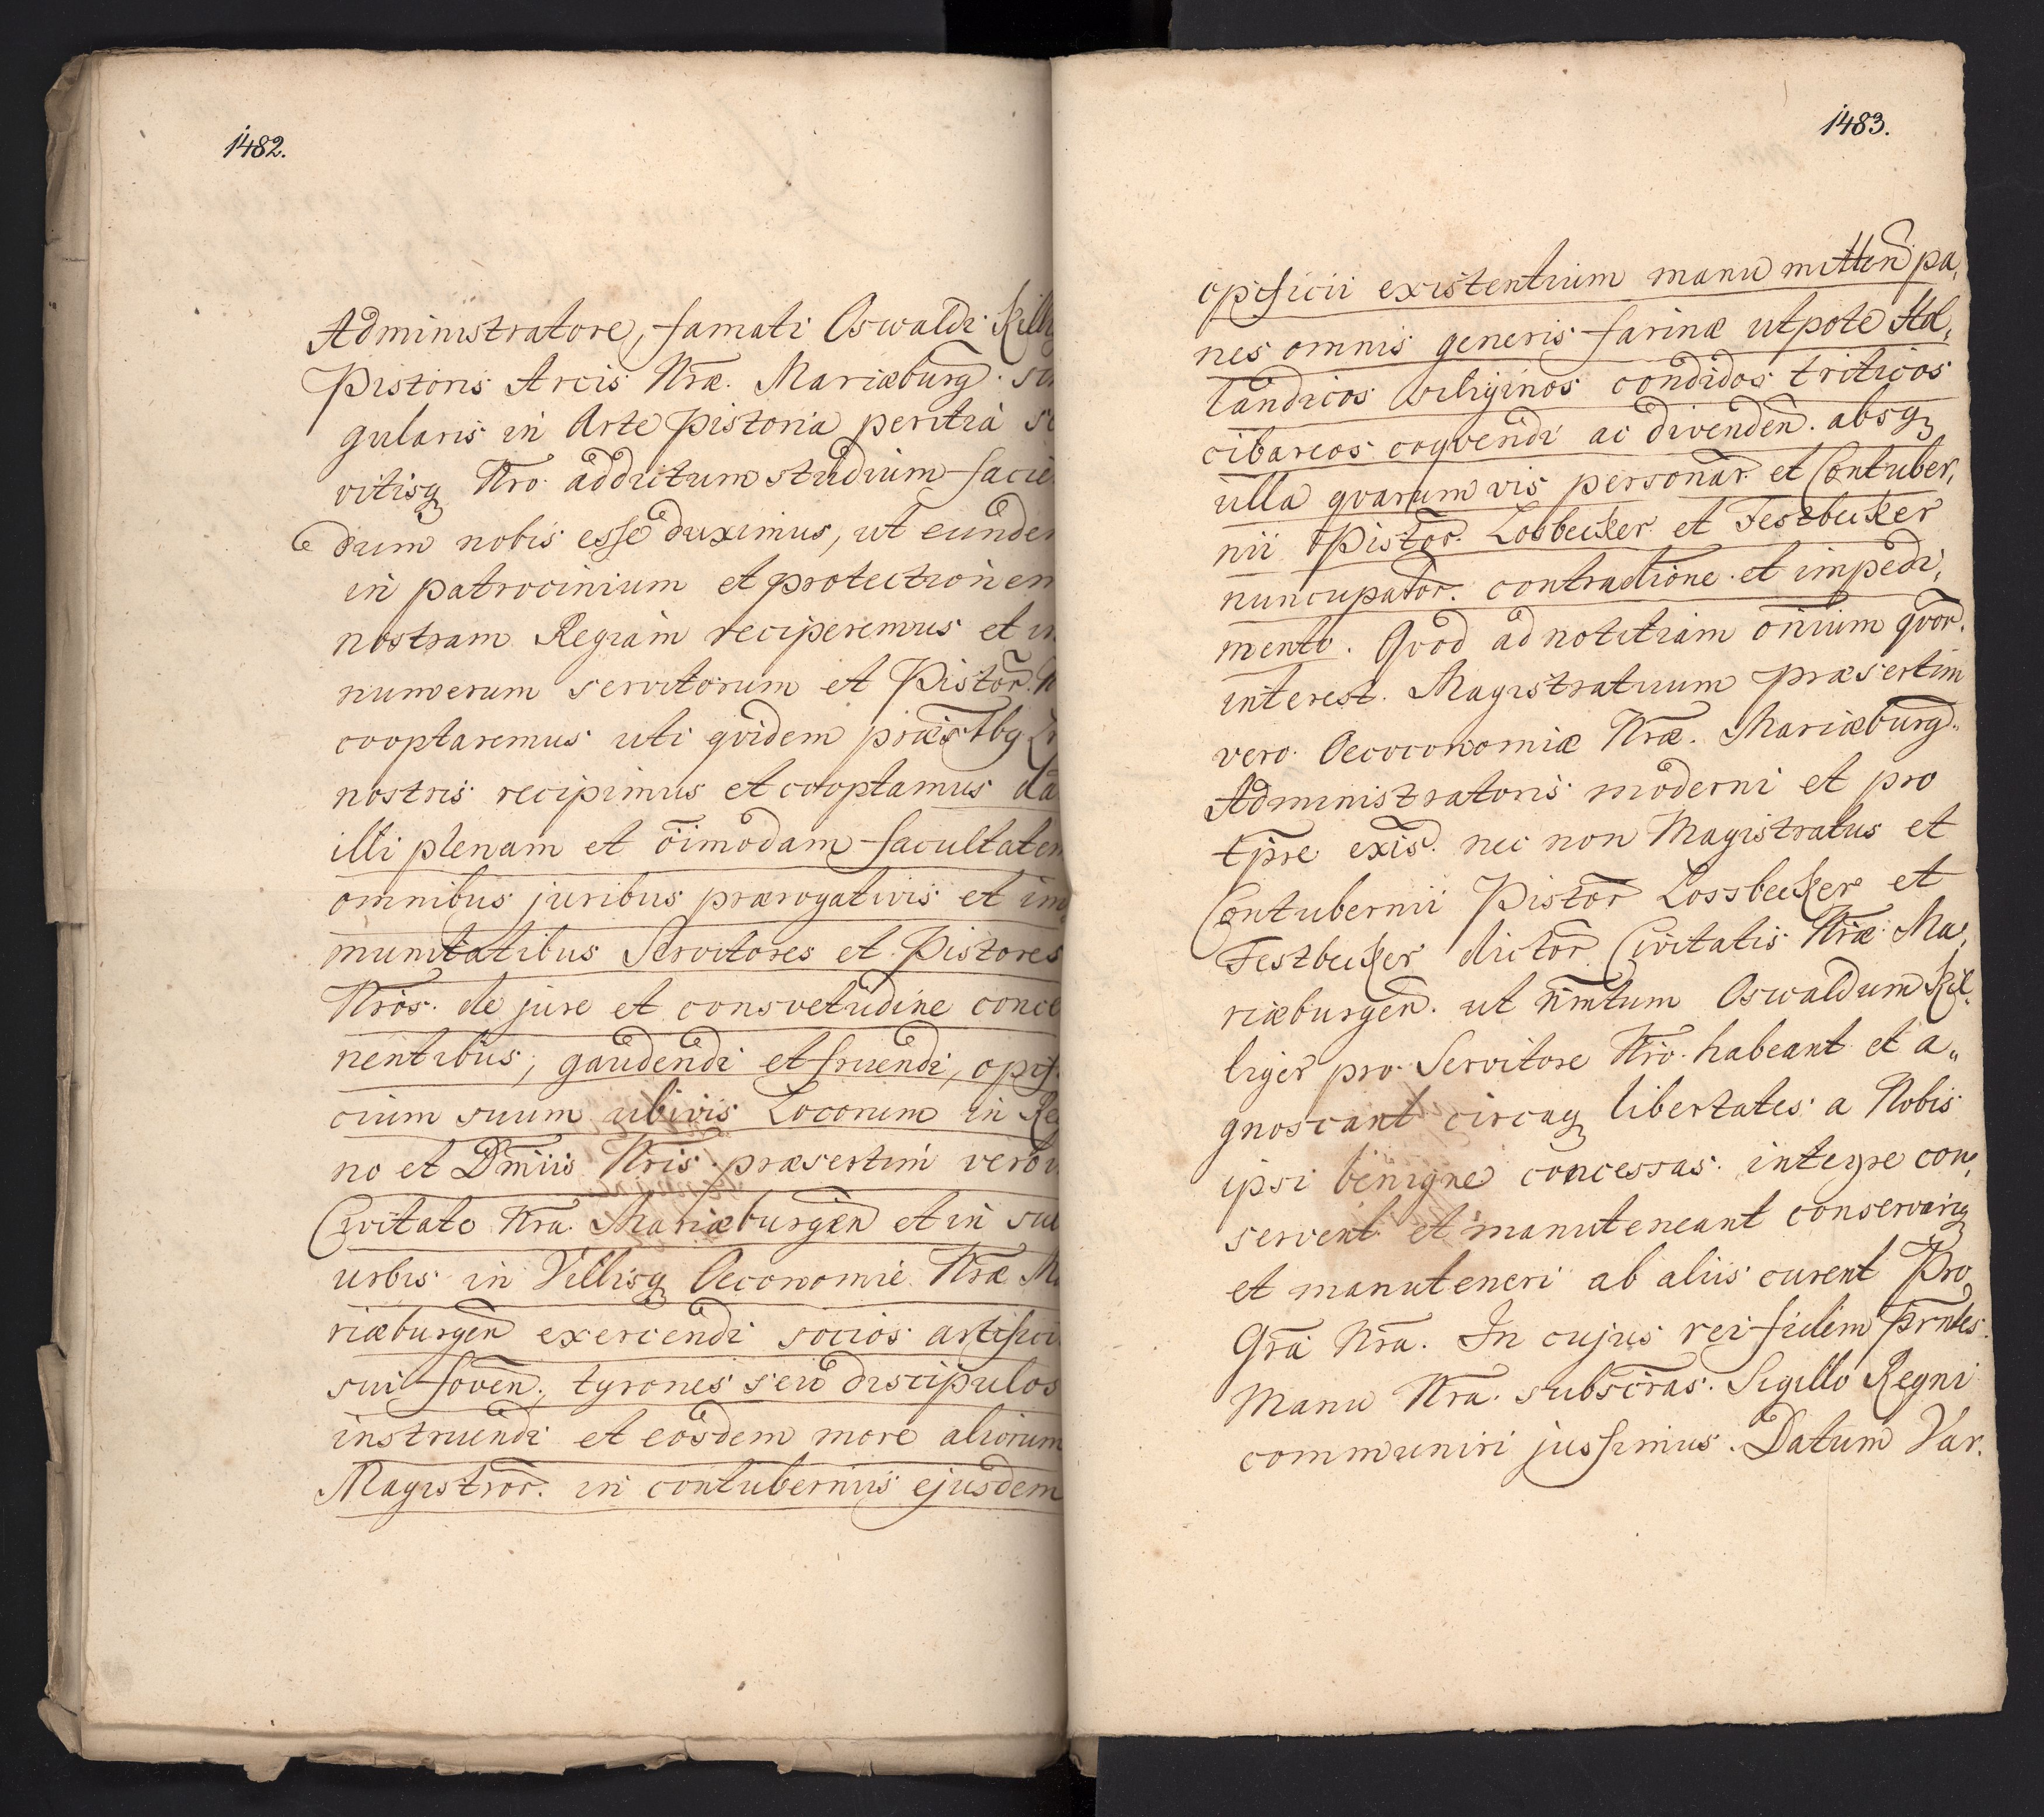 1482.
Administratore, famati Oswaldi Killi
Pistoris Arcis Nrae. Mariaeburg. sin
gularis in Arte Pistoria peritia se
vitisq Nro. addictum studium facien
dum nobis esse duximus, ut eundem
in patrocinium et protectionem
nostram Regiam reciperemus et in
numerum servitorum et Pistor. N
cooptaremus uti qvidem praesbg Lr
nostris recipimus et cooptamus da
illi plenam et oimodam facultatem
omnibus juribus praerogativis et im
munitatibus Servitores et Pistores
Nros. de jure et consvetudine conce
nentibus, gaudendi et fruendi, opif
cium suum ubivis Locorum in Re
no et Dmiis Nris. praesertim vero i
Civitate Nra. Mariaeburgen et in sub
urbis in Villisq Oeconomie Nrae Ma
riaeburgen exercendi socios artificii
sui foven., tyrones seu discipulos
instruendi et eosdem more aliorum
Magistror. in contuberniis ejusdem
1483.
opificii existentium manu mitten pa,
nes omnis generis farinae utpote Hol,
landicos siliginos condidos triticos
cibareos coqvendi ac divenden. absq
ulla qvarumvis personar. et Contuber,
nii Pistor. Losbecker et Festbecker
nuncupator. contradtione et impedi,
mento. Qvod ad notitiam onium qvor.
interest. Magistratuum praesertim
vero Oecoconomiae Nrae. Mariaeburg.
Administratoris moderni et pro
tpre exis. nec non Magistratus et
Contubernii Pistor Lossbecker et
Festbecker dictor. Civitatis Nrae. Ma,
riaeburgen. ut nmtum Oswaldum Kil,
liger pro Servitore Nro. habeant et a,,
gnoscant circaq libertates a Nobis
ipsi benigne concessas. integre con,
servent et manuteneant conservariq
et manuteneri ab aliis curent Pro
Gra Nra. In cujus rei fidem prntes.
Manu Nra. subscras. Sigillo Regni
communiri jussimus. Datum Var.